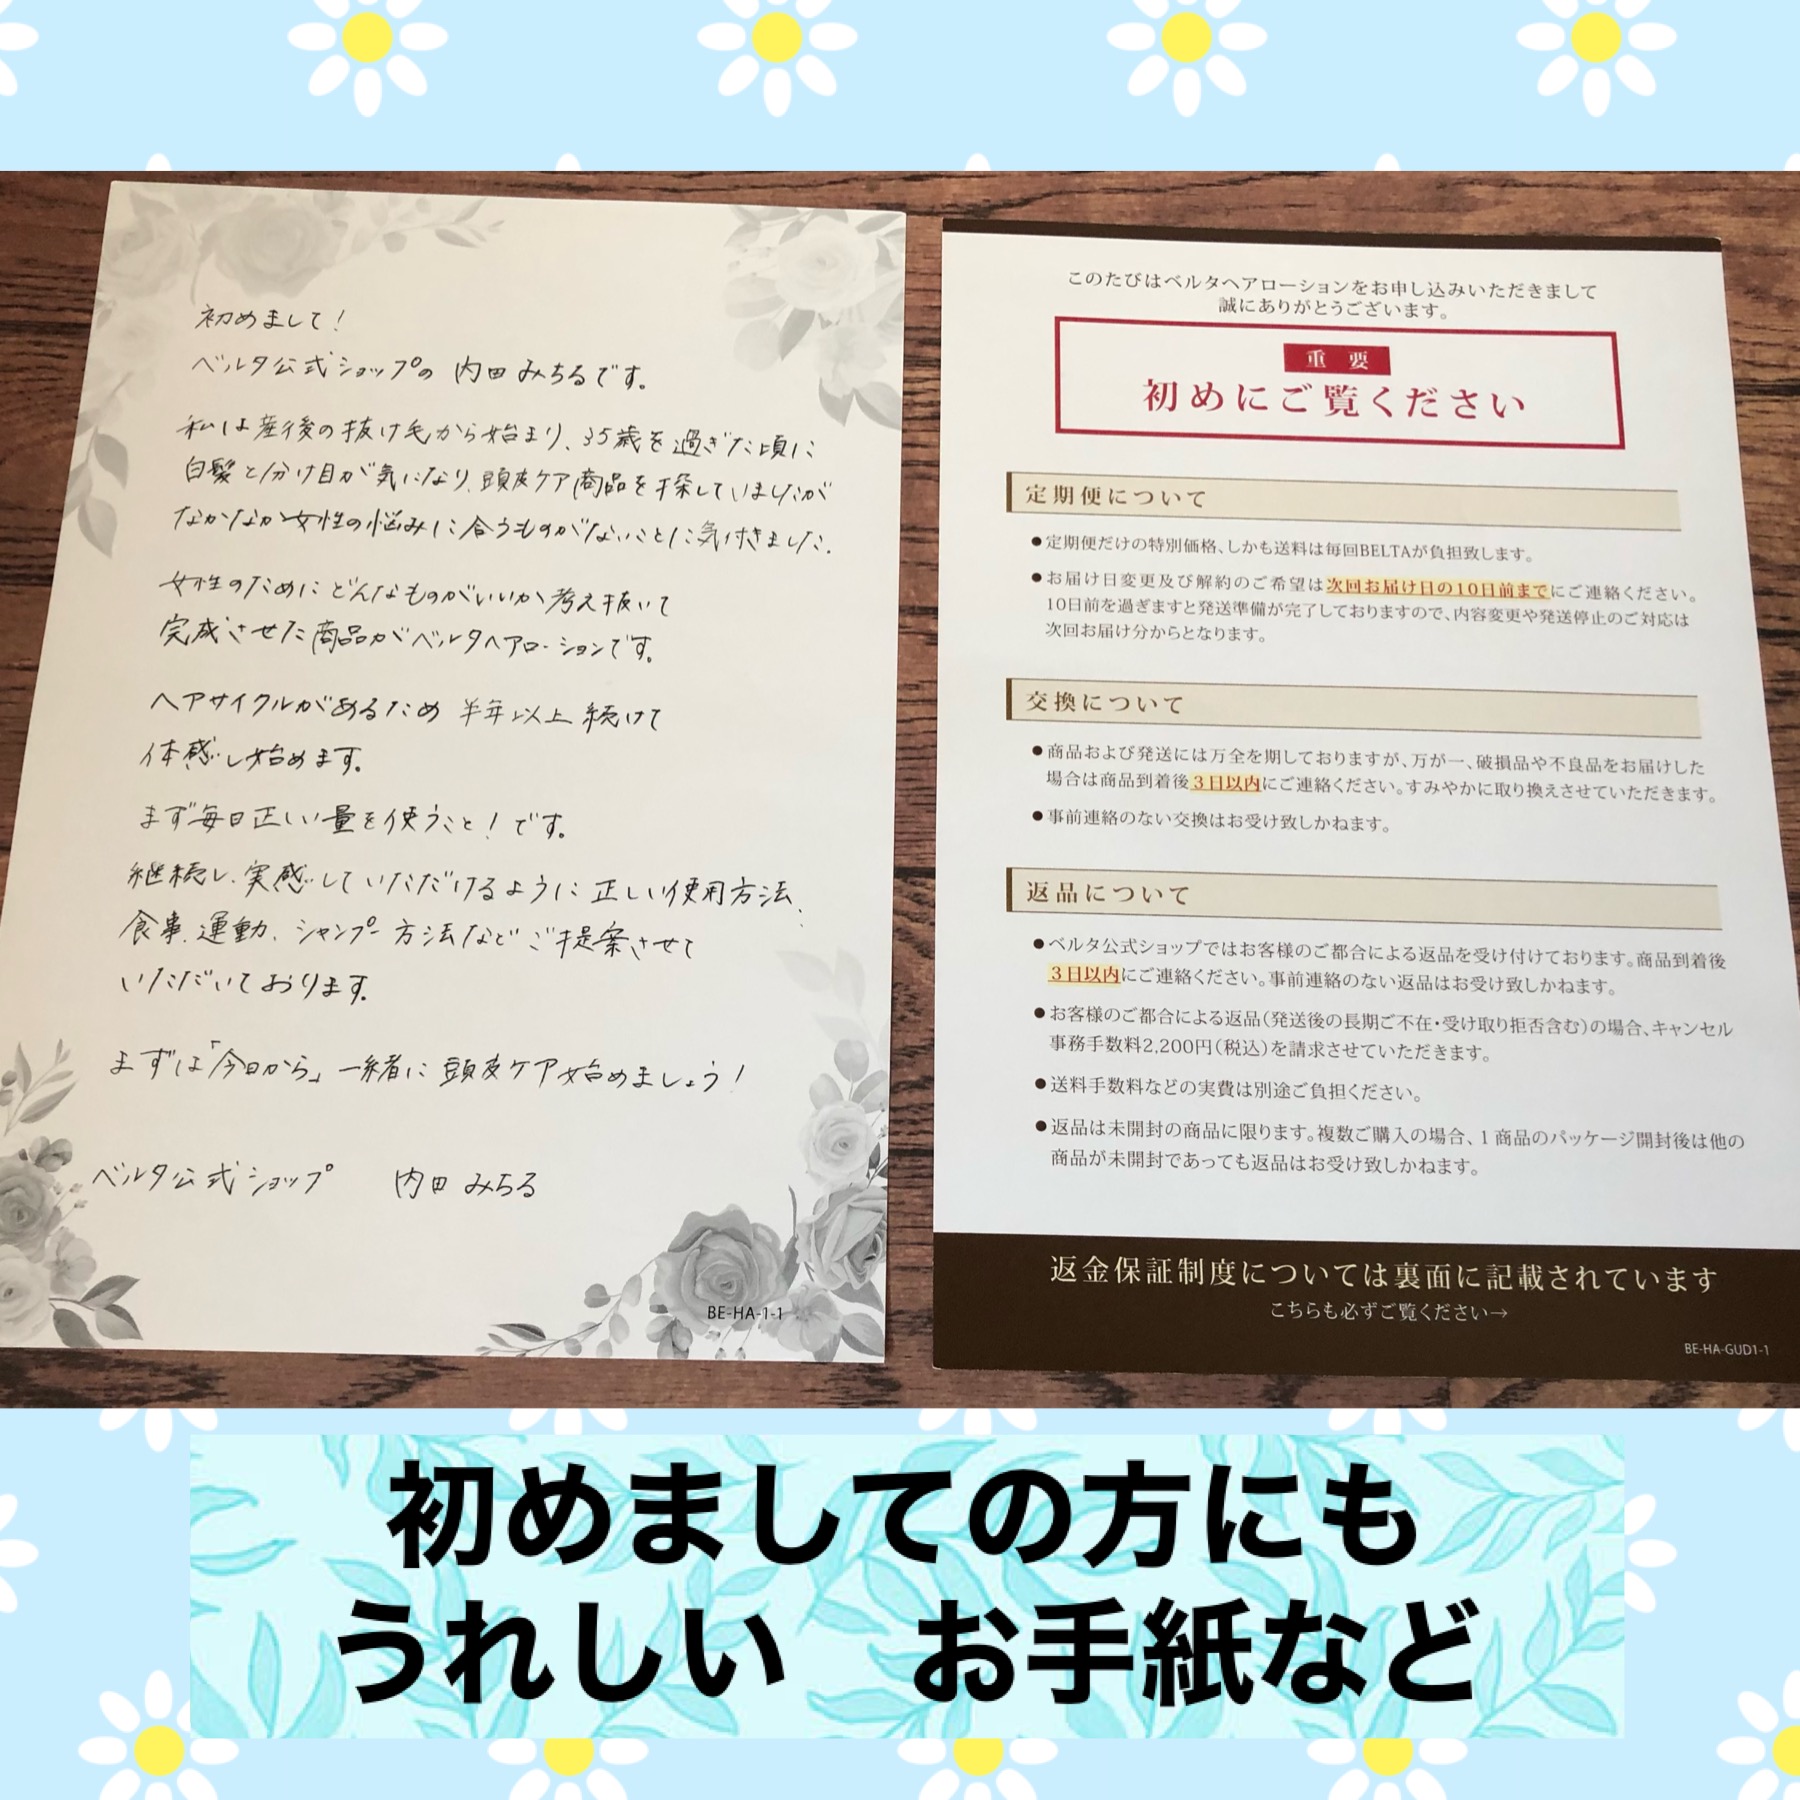 初めまして!
ベルタ公式ショップの 内田みちるです。
私は産後の抜け毛から始まり、35歳を過ぎた頃に
白髪と分け目が気になり、頭皮ケア商品を探していましたが
なかなか女性の悩みに合うものがないことに気付きました。
女性のためにどんなものがいいか考え抜いて
完成させた商品がベルタヘアローションです。
ヘアサイクルがあるため 半年以上続けて
体感し始めます。
まず毎日正しい量を使うこと!です。
継続し、実感していただけるように正しい使用方法、
食事、運動、シャンプー方法などご提案させて
いただいております。
まずは「今日から」一緒に頭皮ケア始めましょう!
ベルタ公式ショップ 内田みちる
BE-HA-1-1
このたびはベルタヘアローションをお申し込みいただきまして
誠にありがとうございます。
重要
初めにご覧ください
定期便について
●定期便だけの特別価格、しかも送料は毎回BELTAが負担致します。
●お届け日変更及び解約のご希望は次回お届け日の10日前までにご連絡ください。
10日前を過ぎますと発送準備が完了しておりますので、内容変更や発送停止のご対応は
次回お届け分からとなります。
交換について
●商品および発送には万全を期しておりますが、万が一、破損品や不良品をお届けした
場合は商品到着後3日以内にご連絡ください。すみやかに取り換えさせていただきます。
●事前連絡のない交換はお受け致しかねます。
返品について
●ベルタ公式ショップではお客様のご都合による返品を受け付けております。商品到着後
3日以内にご連絡ください。事前連絡のない返品はお受け致しかねます。
●お客様のご都合による返品(発送後の長期ご不在・受け取り拒否含む)の場合、キャンセル
事務手数料2,200円(税込)を請求させていただきます。
●送料手数料などの実費は別途ご負担ください。
●返品は未開封の商品に限ります。複数ご購入の場合、1商品のパッケージ開封後は他の
商品が未開封であっても返品はお受け致しかねます。
返金保証制度については裏面に記載されています
こちらも必ずご覧ください→
BE-HA-GUD1-1
初めましての方にも
うれしい お手紙など